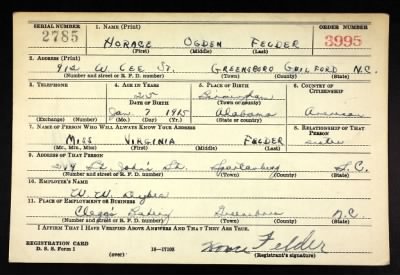 SERIAL NUMBER
1. NAME (Print)
ORDER NUMBER
2785
HORACE OGDEN FELDER
3995
(First) (Middle) (Last)
2. ADDRESS (Print)
912 W. LEE ST. GREENSBORO GUILFORD N.C.
(Number and street or R. F. D. number) (Town) (County) (State)
3. TELEPHONE
4. AGE IN YEARS
5. PLACE OF BIRTH
6. COUNTRY OF CITIZENSHIP
25
Birmingham
DATE OF BIRTH
(Town or county)
Jan. 7 1915
Alabama
American
(Exchange) (Number)
(Mo.) (Day) (Yr.)
(State or country)
7. NAME OF PERSON WHO WILL ALWAYS KNOW YOUR ADDRESS
8. RELATIONSHIP OF THAT PERSON
MISS VIRGINIA FELDER
sister
(Mr., Mrs., Miss) (First) (Middle) (Last)
9. ADDRESS OF THAT PERSON
St. John's St. Spartanburg S.C.
(Number and street or R. F. D. number) (Town) (County) (State)
10. EMPLOYER'S NAME
W. W.
11. PLACE OF EMPLOYMENT OR BUSINESS
Clegg's Bakery Greensboro N.C.
(Number and street or R. F. D. number) (Town) (County) (State)
I AFFIRM THAT I HAVE VERIFIED ABOVE ANSWERS AND THAT THEY ARE TRUE.
REGISTRATION CARD
D. S. S. Form 1
16—17105
Felder
(Registrant's signature)